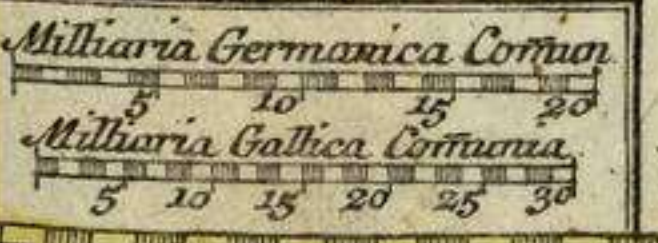 Milliaria Germanica Com̄un
5 10 15 20
Milliaria Gallica Com̄unia
5 10 15 20 25 30